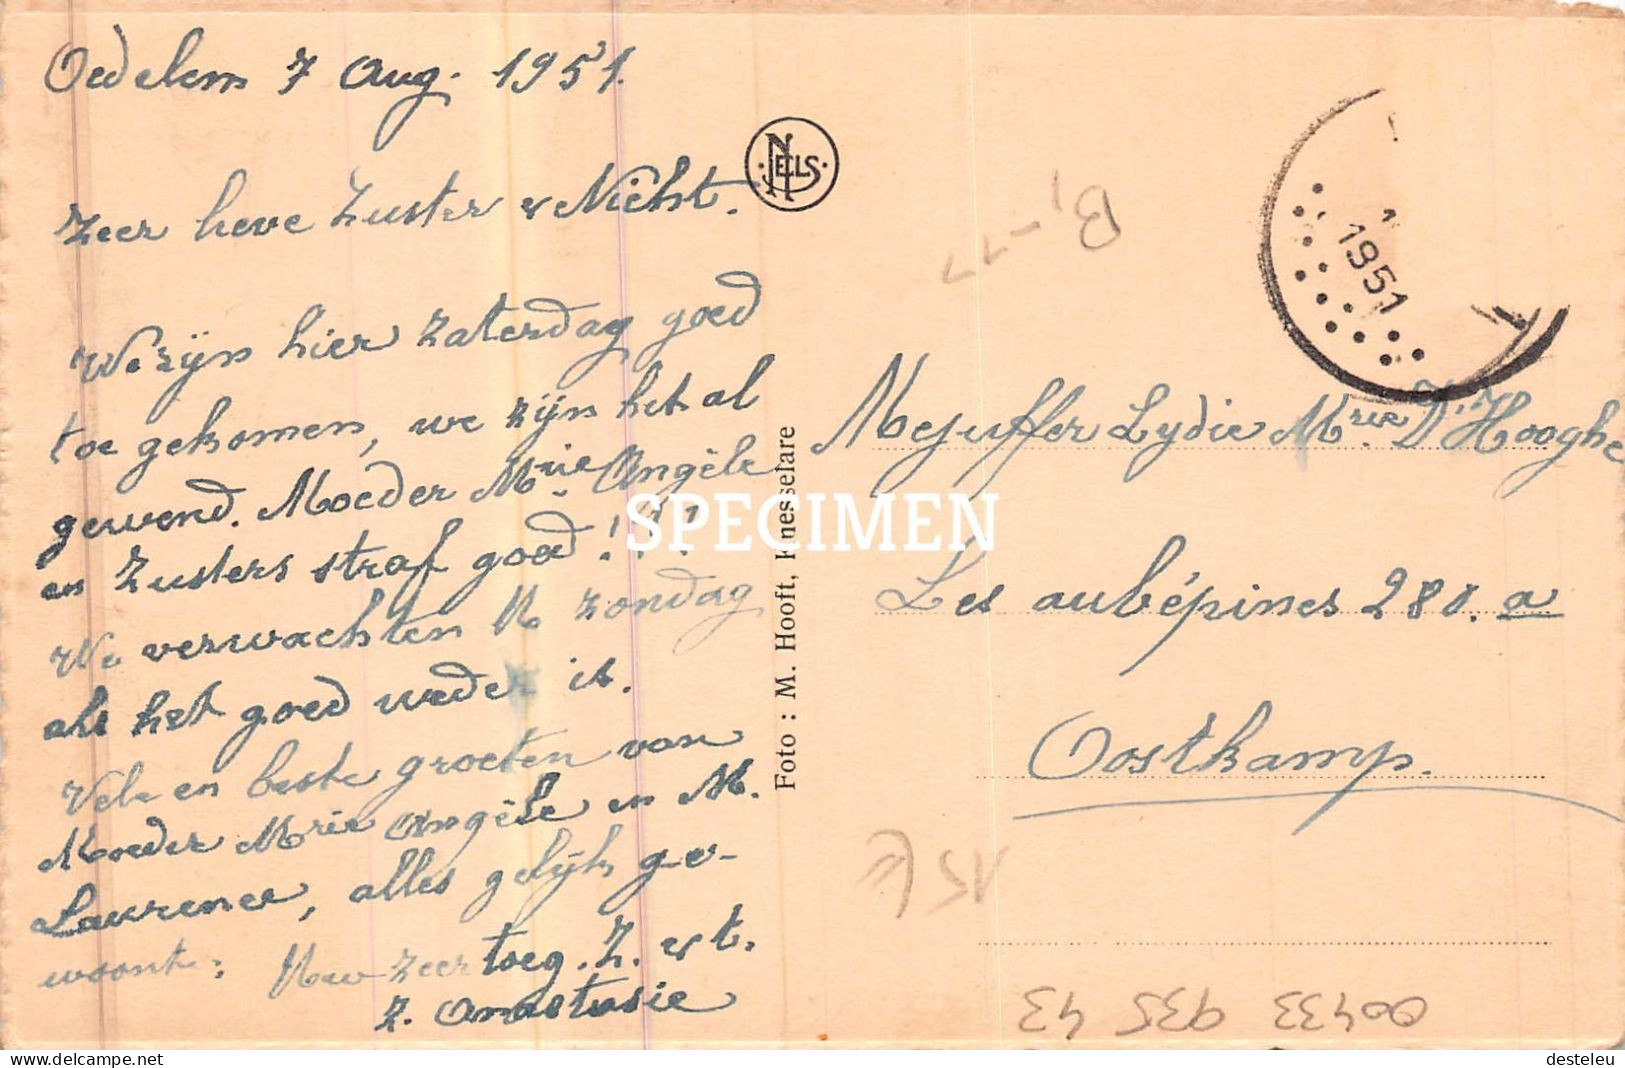 Oedelem 7 Aug. 1951.
Zeer lieve Zuster & Nicht.
We zijn hier zaterdag goed
toe gekomen, we zijn het al
gewend. Moeder Mrie Angèle
en Zusters straf goed!!!!
We verwachten U zondag
als het goed weder is.
Vele en beste groeten van
Moeder Mrie Angèle en M.
Laurence, alles gelijk ge-
woonte: Uw zeer toeg. Z. & t.
Z. Anastasie
NELS
Foto : M. Hooft, Knesselare
1951
Mejuffer Lydie Mrie D'Hooghe
Les aubépines 280. a
Oostkamp.
15 €
00433 935 43
SPECIMEN
www.delcampe.net
desteleu